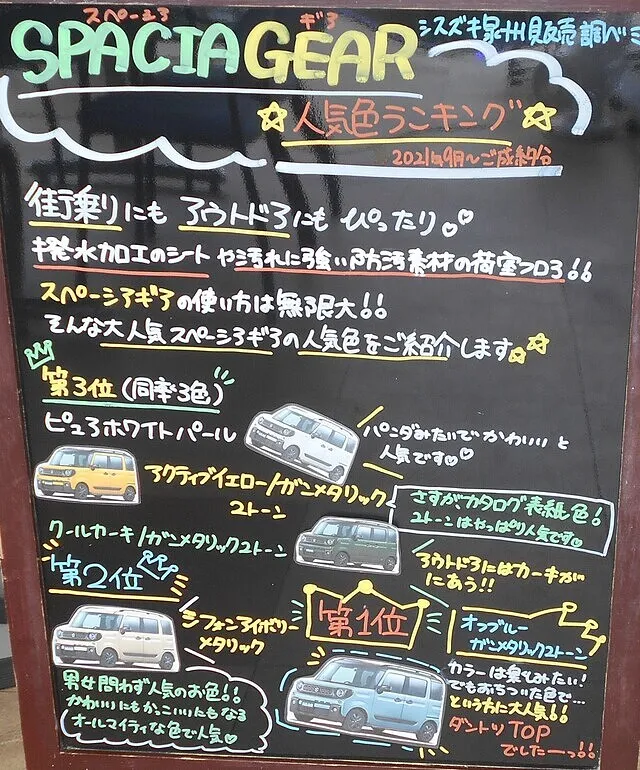 スペーシア ギア
SPACIA GEAR
シスズキ泉州販売調べミ
☆人気色ランキング☆
2021年9月〜ご成約分
街乗りにも アウトドアにも ぴったり♡♡
撥水加工のシート や汚れに強い防汚素材の荷室フロア!!
スペーシアギアの使い方は無限大!!
そんな大人気スペーシアギアの人気色をご紹介します☆☆
第3位(同率3色)
ピュアホワイトパール
パンダみたいでかわいいと
人気です♡♡
アクティブイエロー/ガンメタリック
2トーン
さすがカタログ表紙色!
2トーンはやっぱり人気です♡
クールカーキ/ガンメタリック2トーン
アウトドアにはカーキが
にあう!!
第2位
シフォンアイボリー
メタリック
男女問わず人気のお色!!
かわいいにもかっこいいにもなる
オールマイティな色で人気♡
第1位
オフブルー
ガンメタリック2トーン
カラーは楽しみたい!
でもおちついた色で…
という方に大人気!!
ダントツTOP
でしたーっ!!